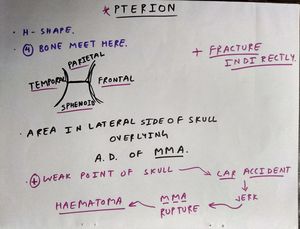 * PTERION
• H-SHAPE.
• ④ BONE MEET HERE.
PARIETAL
TEMPORAL
FRONTAL
SPHENOID
+ FRACTURE
INDIRECTLY.
• AREA IN LATERAL SIDE OF SKULL
OVERLYING
A.D. OF MMA.
• + WEAK POINT OF SKULL → CAR ACCIDENT
JERK
MMA
RUPTURE
HAEMATOMA